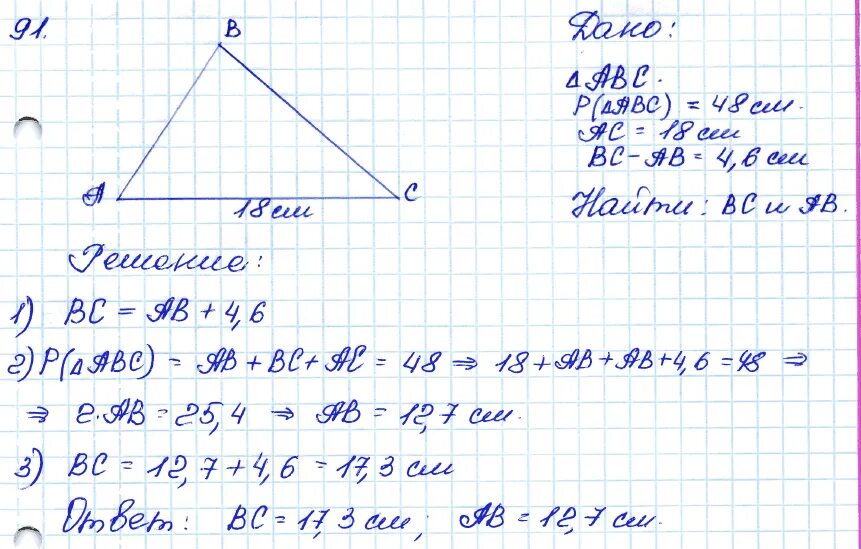 91.
B
A
C
18 см
Дано:
△ABC.
P(△ABC) = 48 см.
AC = 18 см
BC - AB = 4,6 см
Найти: BC и AB.
Решение:
1) BC = AB + 4,6
2) P(△ABC) = AB + BC + AC = 48 ⇒ 18 + AB + AB + 4,6 = 48 ⇒
⇒ 2·AB = 25,4 ⇒ AB = 12,7 см.
3) BC = 12,7 + 4,6 = 17,3 см
Ответ: BC = 17,3 см; AB = 12,7 см.